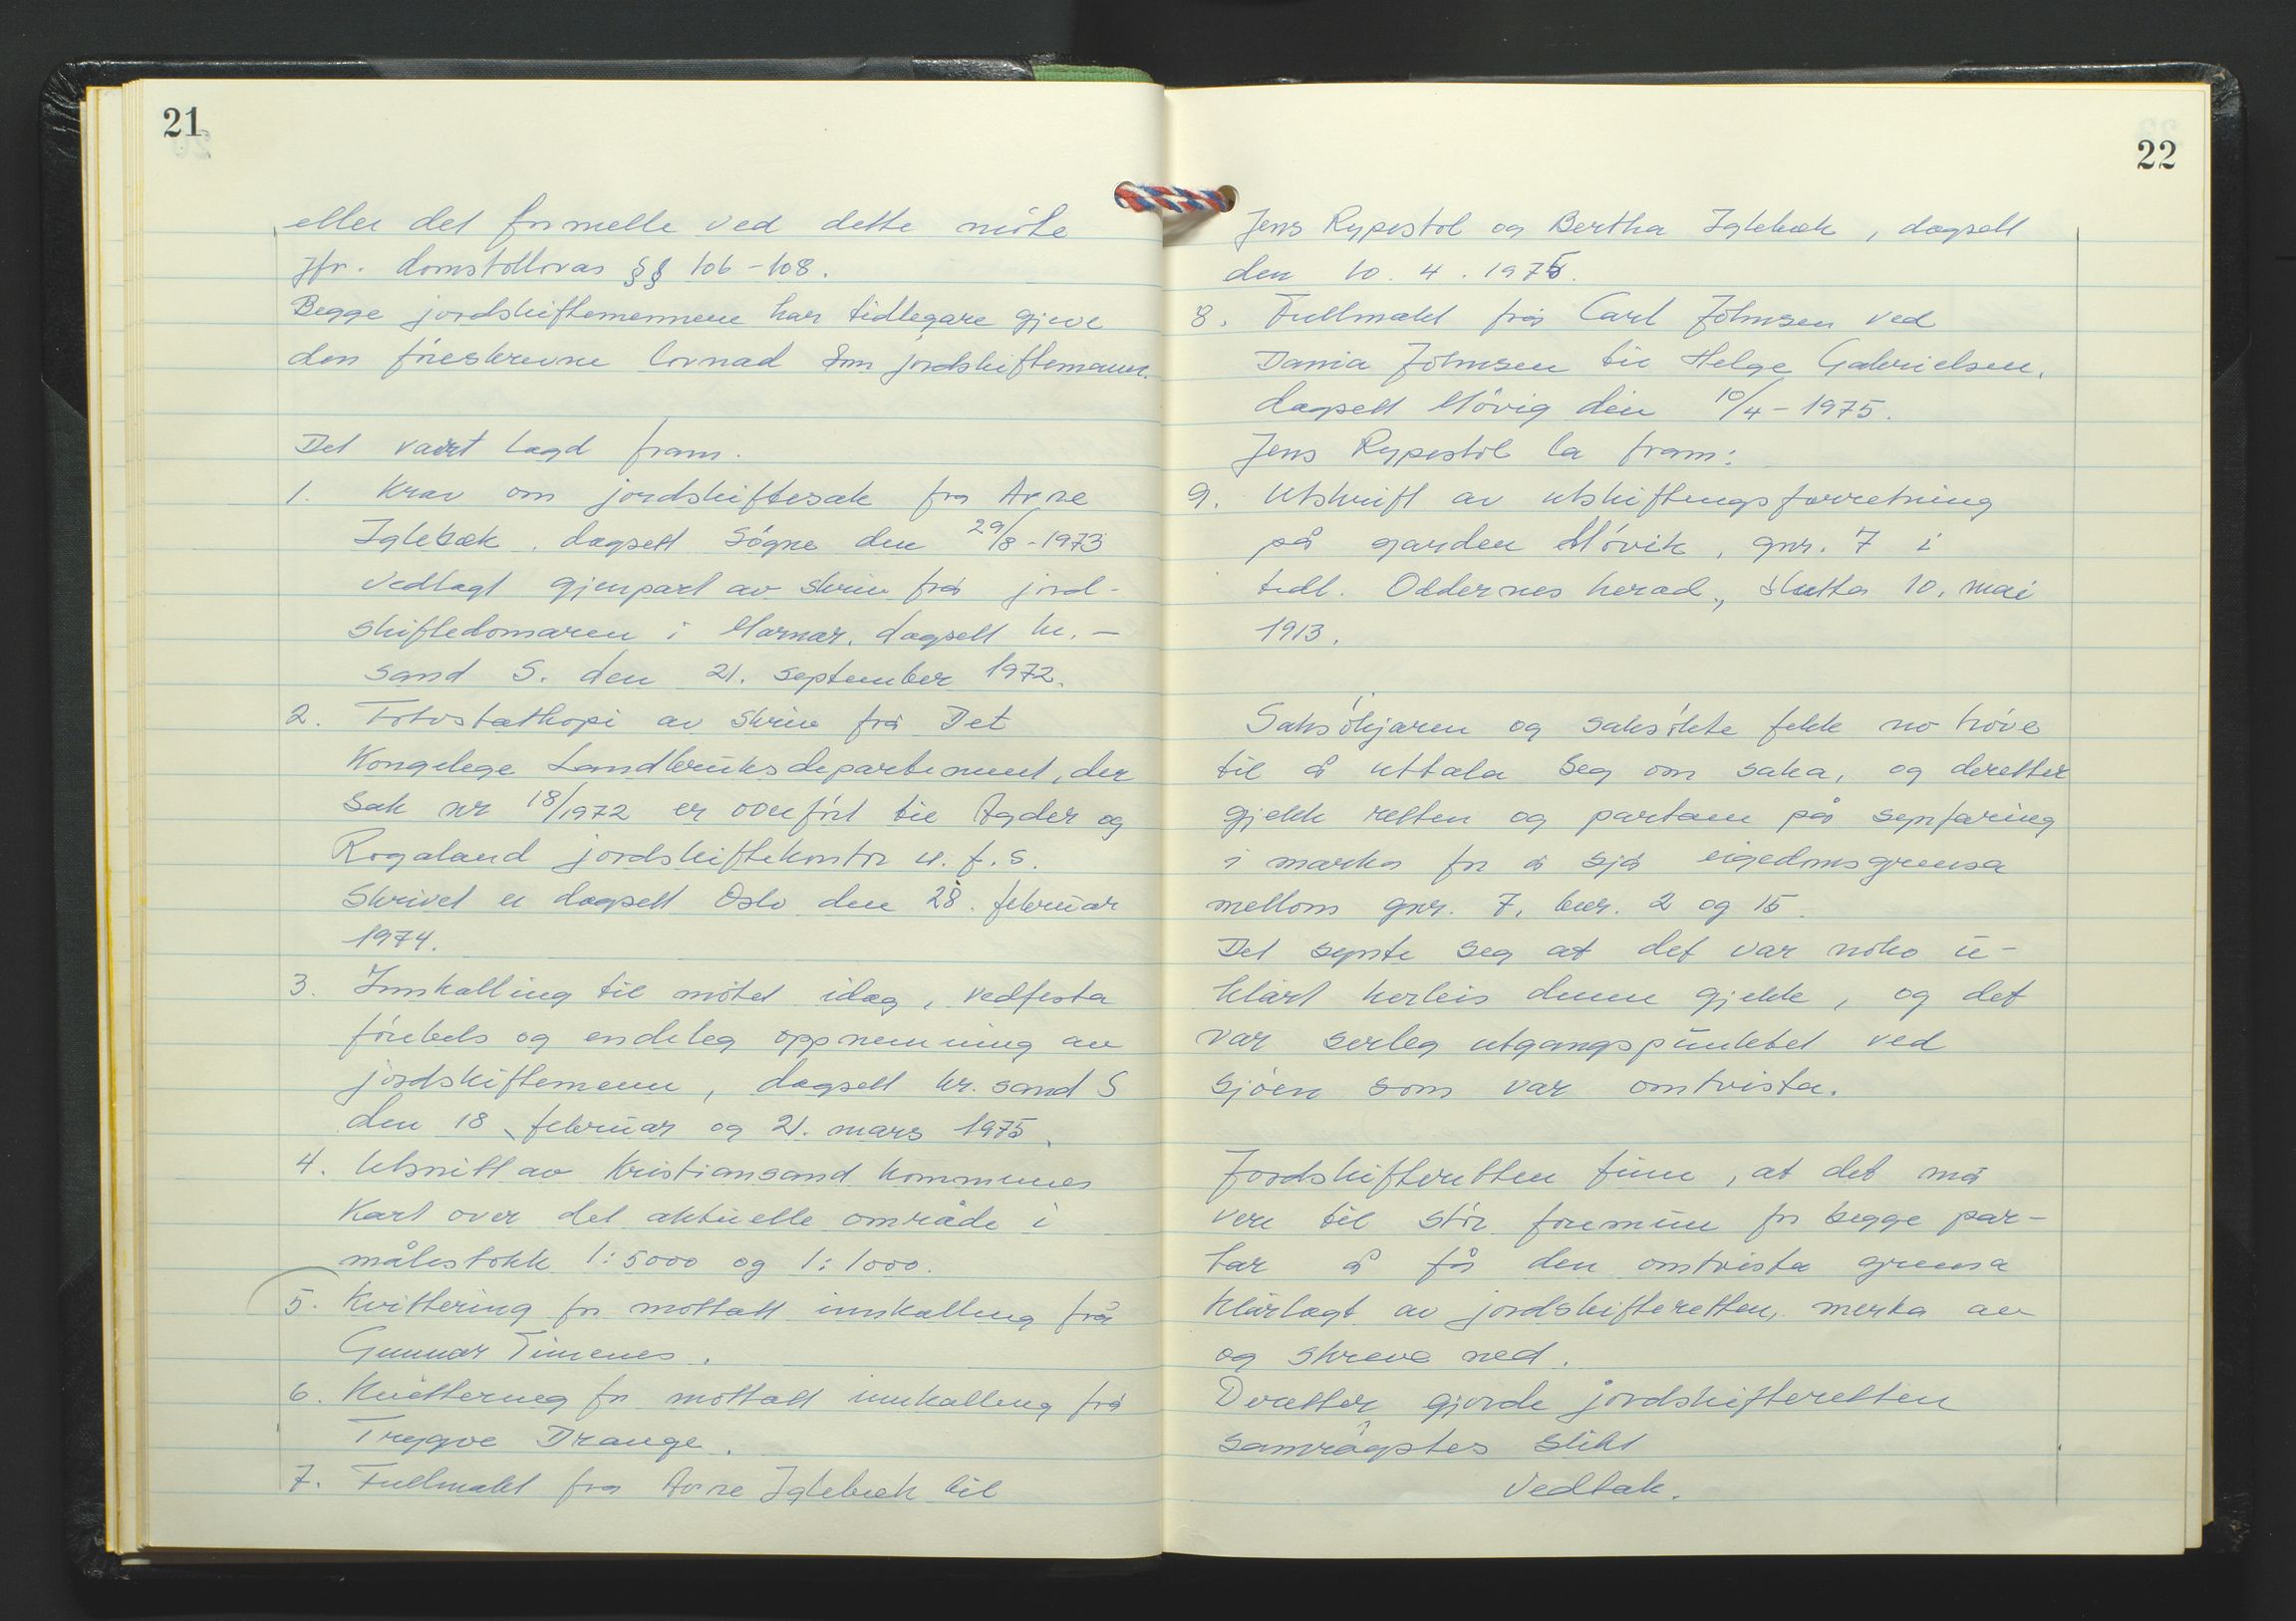 21
eller det formelle ved dette møte
jfr. domstollovas §§ 106-108.
Begge jordskiftemennene har tidlegare gjeve
den föreskrevne lovnad som jordskiftemann.
Det vart lagd fram.
1. Krav om jordskiftesak fra Arne
Iglebæk, dagsett Søgne den 29/8-1973
vedlagt gjenpart av skriv frå jord-
skiftedomaren i Marnar, dagsett kr.-
sand S. den 21. september 1972.
2. Fotostatkopi av skriv frå Det
Kongelege Landbruksdepartement, der
sak nr 18/1972 er overfört til Agder og
Rogaland jordskiftekontor u.f.s.
Skrivet er dagsett Oslo den 28. februar
1974.
3. Innkalling til mötet idag, vedfesta
förebels og endeleg oppnemning av
jordskiftemenn, dagsett kr.sand S
den 18. februar og 21. mars 1975.
4. Utsnitt av Kristiansand kommunes
kart over det aktuelle område i
målestokk 1:5000 og 1:1000.
5. Kvittering for mottatt innkalling frå
Gunnar Timenes.
6. Kvittering for mottatt innkalling frå
Trygve Drange.
7. Fullmakt fra Arne Iglebæk til
22
Jens Rypestöl og Bertha Iglebæk, dagsett
den 10.4.1975.
8. Fullmakt frå Carl Johnsen ved
Dania Johnsen til Helge Gabrielsen,
dagsett Mövig den 10/4-1975.
Jens Rypestöl la fram:
9. Utskrift av utskiftingsforretning
på garden Mövik, gnr. 7 i
tidl. Oddernes herad, slutta 10. mai
1913.
Saksökjaren og saksökte fekk no höve
til å uttala seg om saka, og deretter
gjekk retten og partane på synfaring
i marka for å sjå eigedomsgrensa
mellom gnr. 7, bnr. 2 og 15.
Det synte seg at det var noko u-
klårt korleis denne gjekk, og det
var serleg utgangspunktet ved
sjöen som var omtvista.
Jordskifteretten finn, at det må
vere til stör foremun for begge par-
tar å få den omtvista grensa
klårlagt av jordskifteretten, merka av
og skreve ned.
Deretter gjorde jordskifteretten
samrøystes slikt
Vedtak.